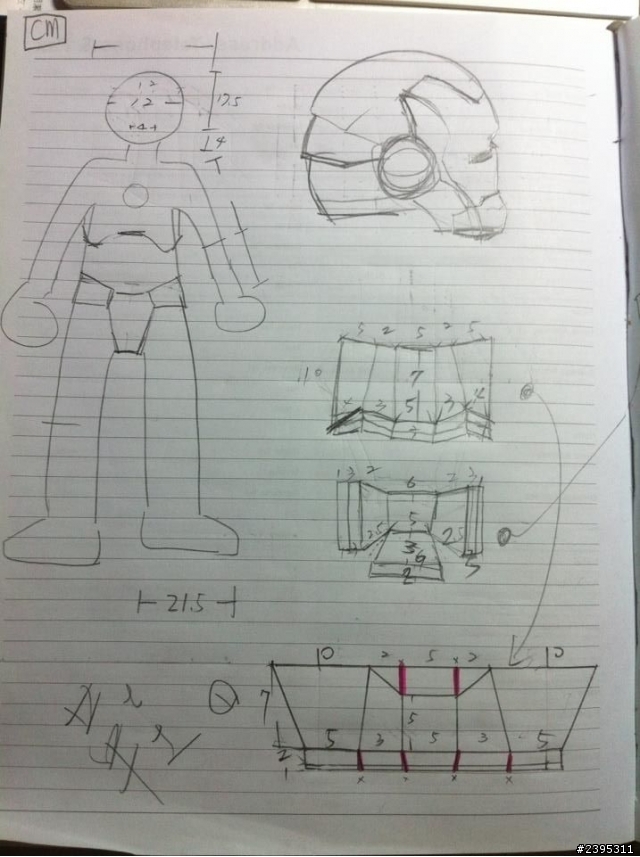 CM
12
12
17.5
4
4
5 2 5 2 5
110
7
4 3 5 3 4
3
1 3 2 6 2 3 1
5
2.5 2.5
3
6
2
5
21.5
10 2 5 2 10
x x
7
5
5 3 5 3 5
2
1
x x x x
#2395311